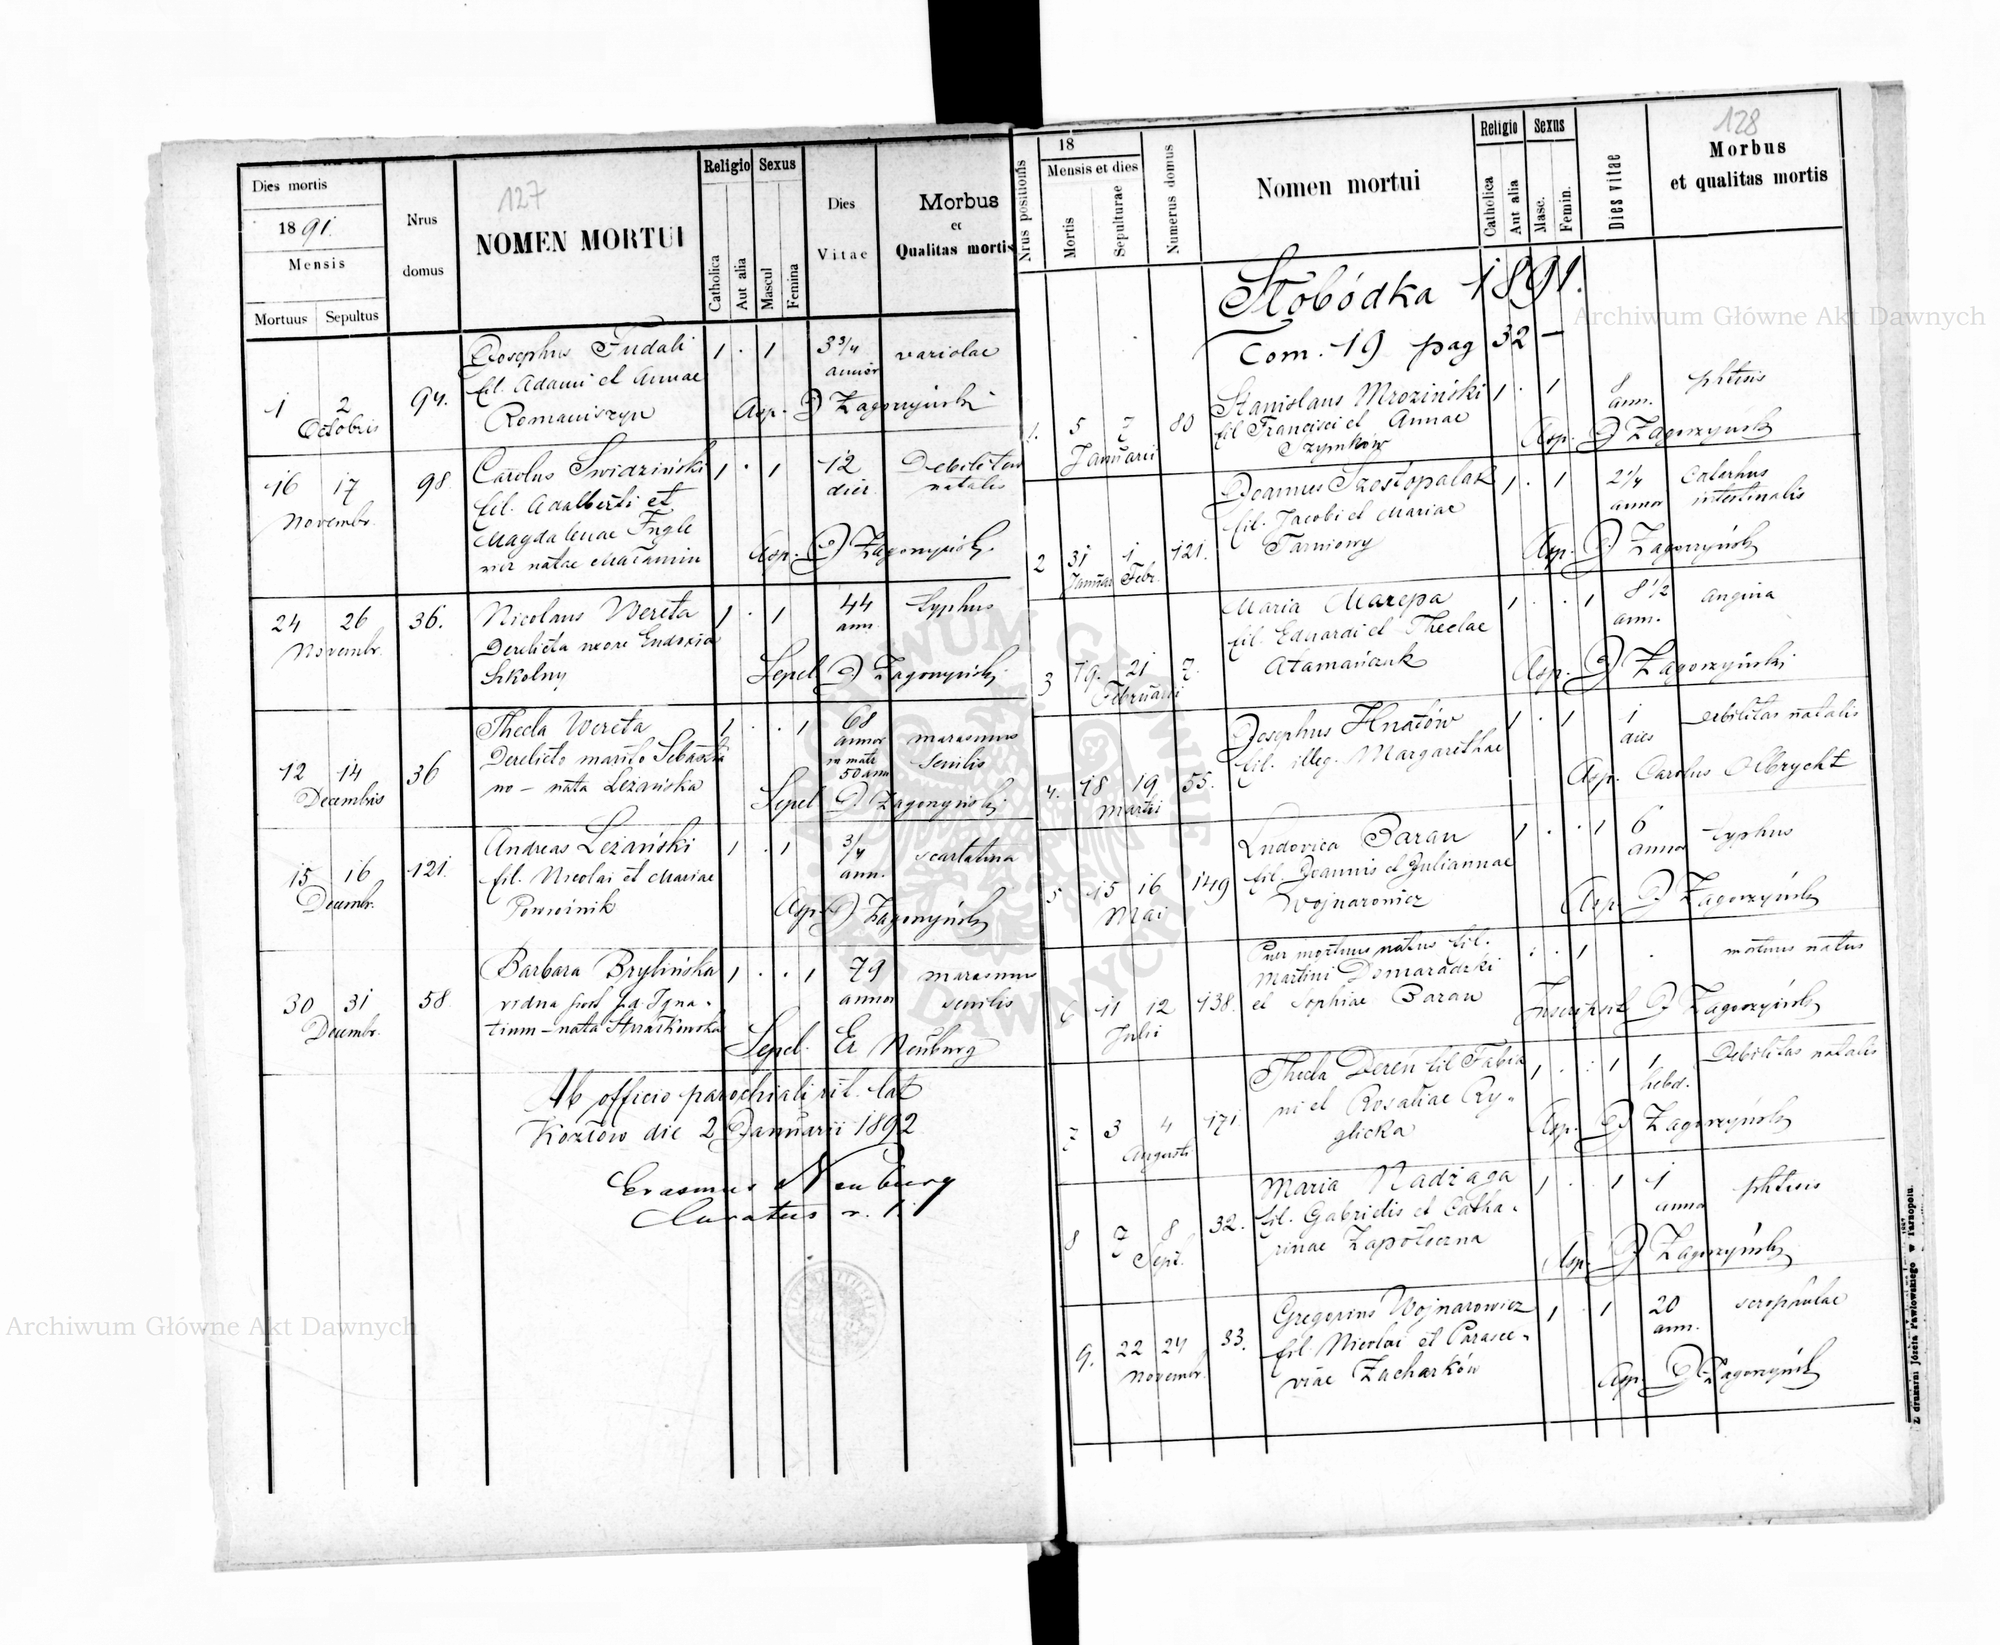 127
Dies mortis
1891.
Mensis
Mortuus Sepultus
Nrus domus
NOMEN MORTUI
Religio
Catholica
Aut alia
Sexus
Mascul
Femina
Dies Vitae
Morbus
et
Qualitas mortis
1 2 94. Josephus Fudali 1 . 1 3 3/4 variolae
fil. Adami et Annae annor
Octobris Romaniszyn Asp. J Zagorzyński
16 17 98. Carolus Swidziński 1 . 1 12 Debilitas
Novembr. fil. Adalberti et dier. natalis
Magdalenae
natae Asp. J Zagorzyński
24 26 36. Nicolaus Wereta 1 . 1 44 typhus
Novembr. Derelicta uxore Eudoxia ann.
Szkolny Sepel J Zagorzyński
12 14 36 Thecla Wereta 1 . . 1 68 marasmus
Decembris Derelicto marito Sebastia annor senilis
no - nata Leżańska 50 ann
Sepel J Zagorzyński
15 16 121. Andreas Leżański 1 . 1 3/4 scarlatina
Decembr. fil. Nicolai et Mariae ann.
Powroźnik Asp. J Zagorzyński
30 31 58. Barbara Brylińska 1 . . 1 79 marasmus
Decembr. vidua post Igna- annor senilis
tium - nata
Sepel. Er Neuburg
Ab officio parochiali rit. lat
Kozłów die 2 Januarii 1892
Erasmus Neuburg
Curatus r. l.
128
Nrus positionis
18
Mensis et dies
Mortis
Sepulturae
Numerus domus
Nomen mortui
Religio
Catholica
Aut alia
Sexus
Masc.
Femin.
Dies vitae
Morbus
et qualitas mortis
Słobódka 1891.
Tom. 19 pag 32 -
1. 5 7 80 Stanislaus Mroziński 1 . 1 8 phtisis
Januarii fil Francisci et Annae ann.
Szymków Asp. J Zagorzyński
2 31 1 121. Joannes Szostopalak 1 . 1 2 1/4 Catarhus
Januar Febr. fil. Jacobi et Mariae annor intestinalis
Tarniowy Asp. J Zagorzyński
3 19. 21 7. Maria Mazepa 1 . . 1 8 1/2 angina
Februarii fil. Eduardi et Theclae ann.
Atamańczuk Asp. J Zagorzyński
4. 18 19 55. Josephus Hnatów 1 . 1 1 Debilitas natalis
Martii fil. illeg. Margarethae dies
Asp. Carolus Olbrycht
5 15 16 149 Ludovica Baran 1 . . 1 6 typhus
Mai fil. Joannis et Juliannae annor
Wojnarowicz Asp. J Zagorzyński
6 11 12 138. Puer mortuus natus fil. : . 1 . mortuus natus
Julii Martini Domaradzki
et Sophiae Baran Inscripsit J Zagorzyński
7 3 4 171. Thecla Dereń fil Fabia 1 . : 1 1 Debilitas natalis
Augusti ni et Rosaliae Ry- hebd.
glicka Asp. J Zagorzyński
8 7 8 32. Maria Nadziaga 1 . 1 1 phtisis
Sept. fil. Gabrielis et Catha- anno
rinae Zapotoczna Asp. J Zagorzyński
9. 22 24 33. Gregorius Wojnarowicz 1 . 1 20 scrophulae
Novembr. fil. Nicolai et Parasce- ann.
viae Zacharków Asp. J Zagorzyński
Z drukarni Józefa Pawłowskiego w Tarnopolu.
Archiwum Główne Akt Dawnych
Archiwum Główne Akt Dawnych
ARCHIWUM GŁÓWNE AKT DAWNYCH